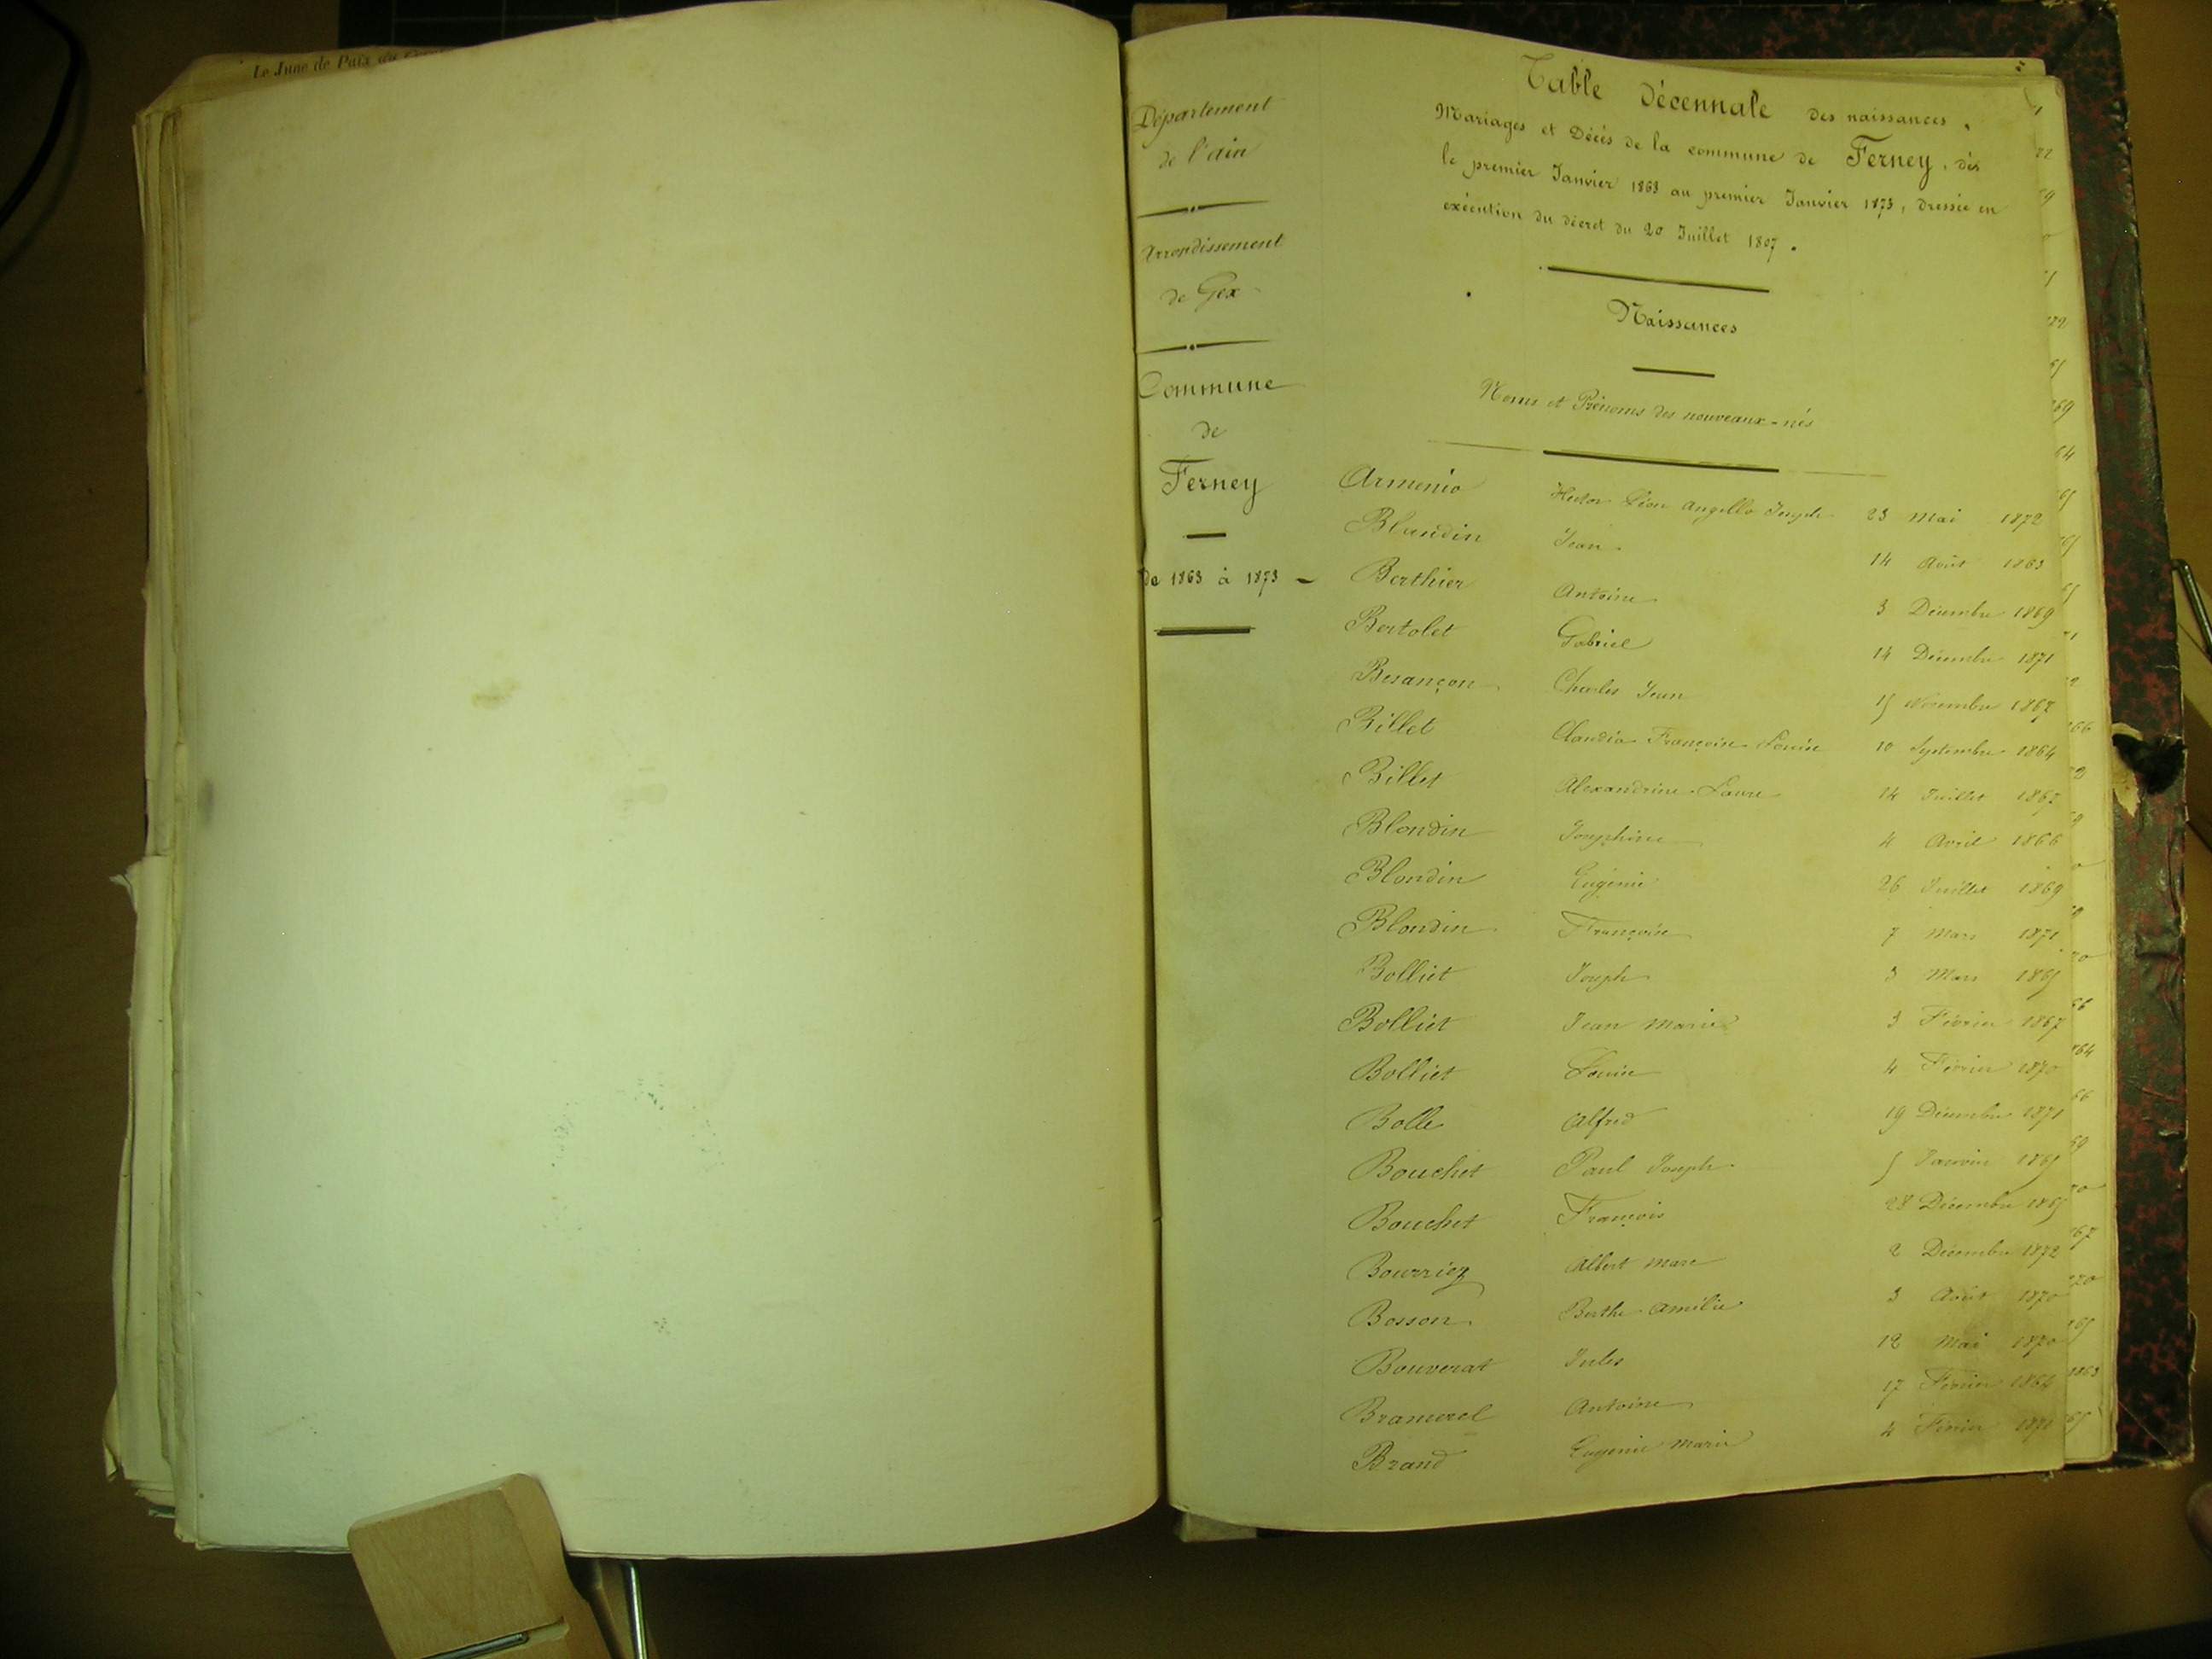 Le Juge de Paix du
Département
de l'ain
Arrondissement
de Gex
Commune
de
Ferney
de 1863 à 1873
Table Décennale des naissances,
Mariages et Décès de la commune de Ferney, dès
le premier Janvier 1863 au premier Janvier 1873, dressée en
exécution du décret du 20 Juillet 1807.
Naissances
Noms et Prénoms des nouveaux-nés
Armenio Hector Léon Angello Joseph 23 Mai 1872
Blandin Jean 14 Août 1863
Berthier Antoine 3 Décembre 1869
Bertolet Gabriel 14 Décembre 1871
Besançon Charles Jean 15 Novembre 1867
Billet Claudia Françoise Louise 10 Septembre 1864
Billet Alexandrine Laure 14 Juillet 1867
Blondin Joséphine 4 Avril 1866
Blondin Eugénie 26 Juillet 1869
Blondin Françoise 7 Mars 1871
Bolliet Joseph 3 Mars 1865
Bolliet Jean Marie 3 Février 1867
Bolliet Louise 4 Février 1870
Bolle Alfred 19 Décembre 1871
Bouchet Paul Joseph 5 Janvier 1865
Bouchet François 28 Décembre 1865
Bourriez Albert Marc 2 Décembre 1872
Bosson Berthe Amélie 3 Août 1870
Bouverat Jules 12 Mai 1870
Bramerel Antoine 17 Février 1864
Brand Eugénie Marie 4 Février 1871